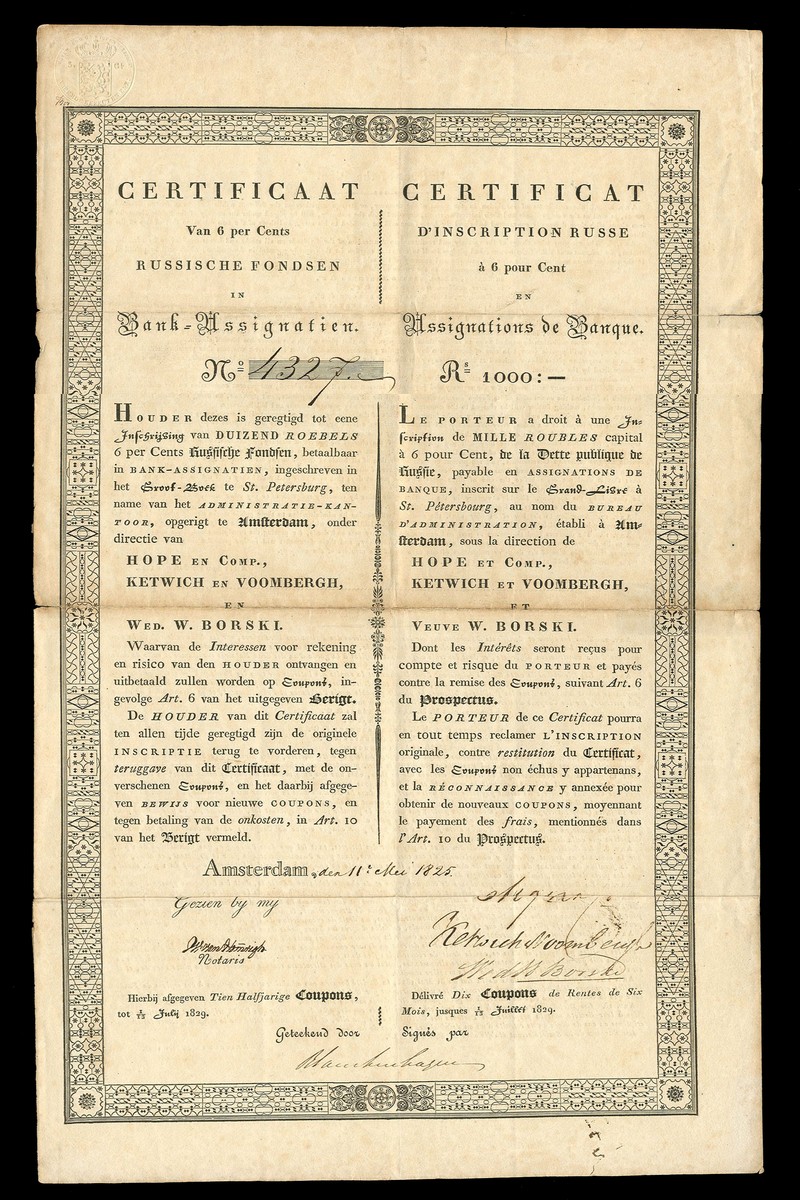 CERTIFICAAT
Van 6 per Cents
RUSSISCHE FONDSEN
IN
Bank-Assignatien.
Nº 4327.
HOUDER dezes is geregtigd tot eene
Inschrijving van DUIZEND ROEBELS
6 per Cents Russische Fondsen, betaalbaar
in BANK-ASSIGNATIEN, ingeschreven in
het Groot-Boek te St. Petersburg, ten
name van het ADMINISTRATIE-KAN-
TOOR, opgerigt te Amsterdam, onder
directie van
HOPE EN COMP.,
KETWICH EN VOOMBERGH,
EN
WED. W. BORSKI.
Waarvan de Interessen voor rekening
en risico van den HOUDER ontvangen en
uitbetaald zullen worden op Coupons, in-
gevolge Art. 6 van het uitgegeven Berigt.
De HOUDER van dit Certificaat zal
ten allen tijde geregtigd zijn de originele
INSCRIPTIE terug te vorderen, tegen
teruggave van dit Certificaat, met de on-
verschenen Coupons, en het daarbij afgege-
ven BEWIJS voor nieuwe COUPONS, en
tegen betaling van de onkosten, in Art. 10
van het Berigt vermeld.
CERTIFICAT
D'INSCRIPTION RUSSE
à 6 pour Cent
EN
Assignations de Banque.
Rs 1000:—
LE PORTEUR a droit à une In-
scription de MILLE ROUBLES capital
à 6 pour Cent, de la Dette publique de
Russie, payable en ASSIGNATIONS DE
BANQUE, inscrit sur le Grand-Livre à
St. Pétersbourg, au nom du BUREAU
D'ADMINISTRATION, établi à Am-
sterdam, sous la direction de
HOPE ET COMP.,
KETWICH ET VOOMBERGH,
ET
VEUVE W. BORSKI.
Dont les Intérêts seront reçus pour
compte et risque du PORTEUR et payés
contre la remise des Coupons, suivant Art. 6
du Prospectus.
Le PORTEUR de ce Certificat pourra
en tout temps reclamer L'INSCRIPTION
originale, contre restitution du Certificat,
avec les Coupons non échus y appartenans,
et la RÉCONNAISSANCE y annexée pour
obtenir de nouveaux COUPONS, moyennant
le payement des frais, mentionnés dans
l'Art. 10 du Prospectus.
Amsterdam, den 11e Mei 1825.
Gezien by my
Notaris
Ketwich & Voombergh
Wed W Borski
Hierbij afgegeven Tien Halfjarige Coupons,
tot 1/13 Julij 1829.
Délivré Dix Coupons de Rentes de Six
Mois, jusques 1/13 Juillet 1829.
Geteekend door
Signés par